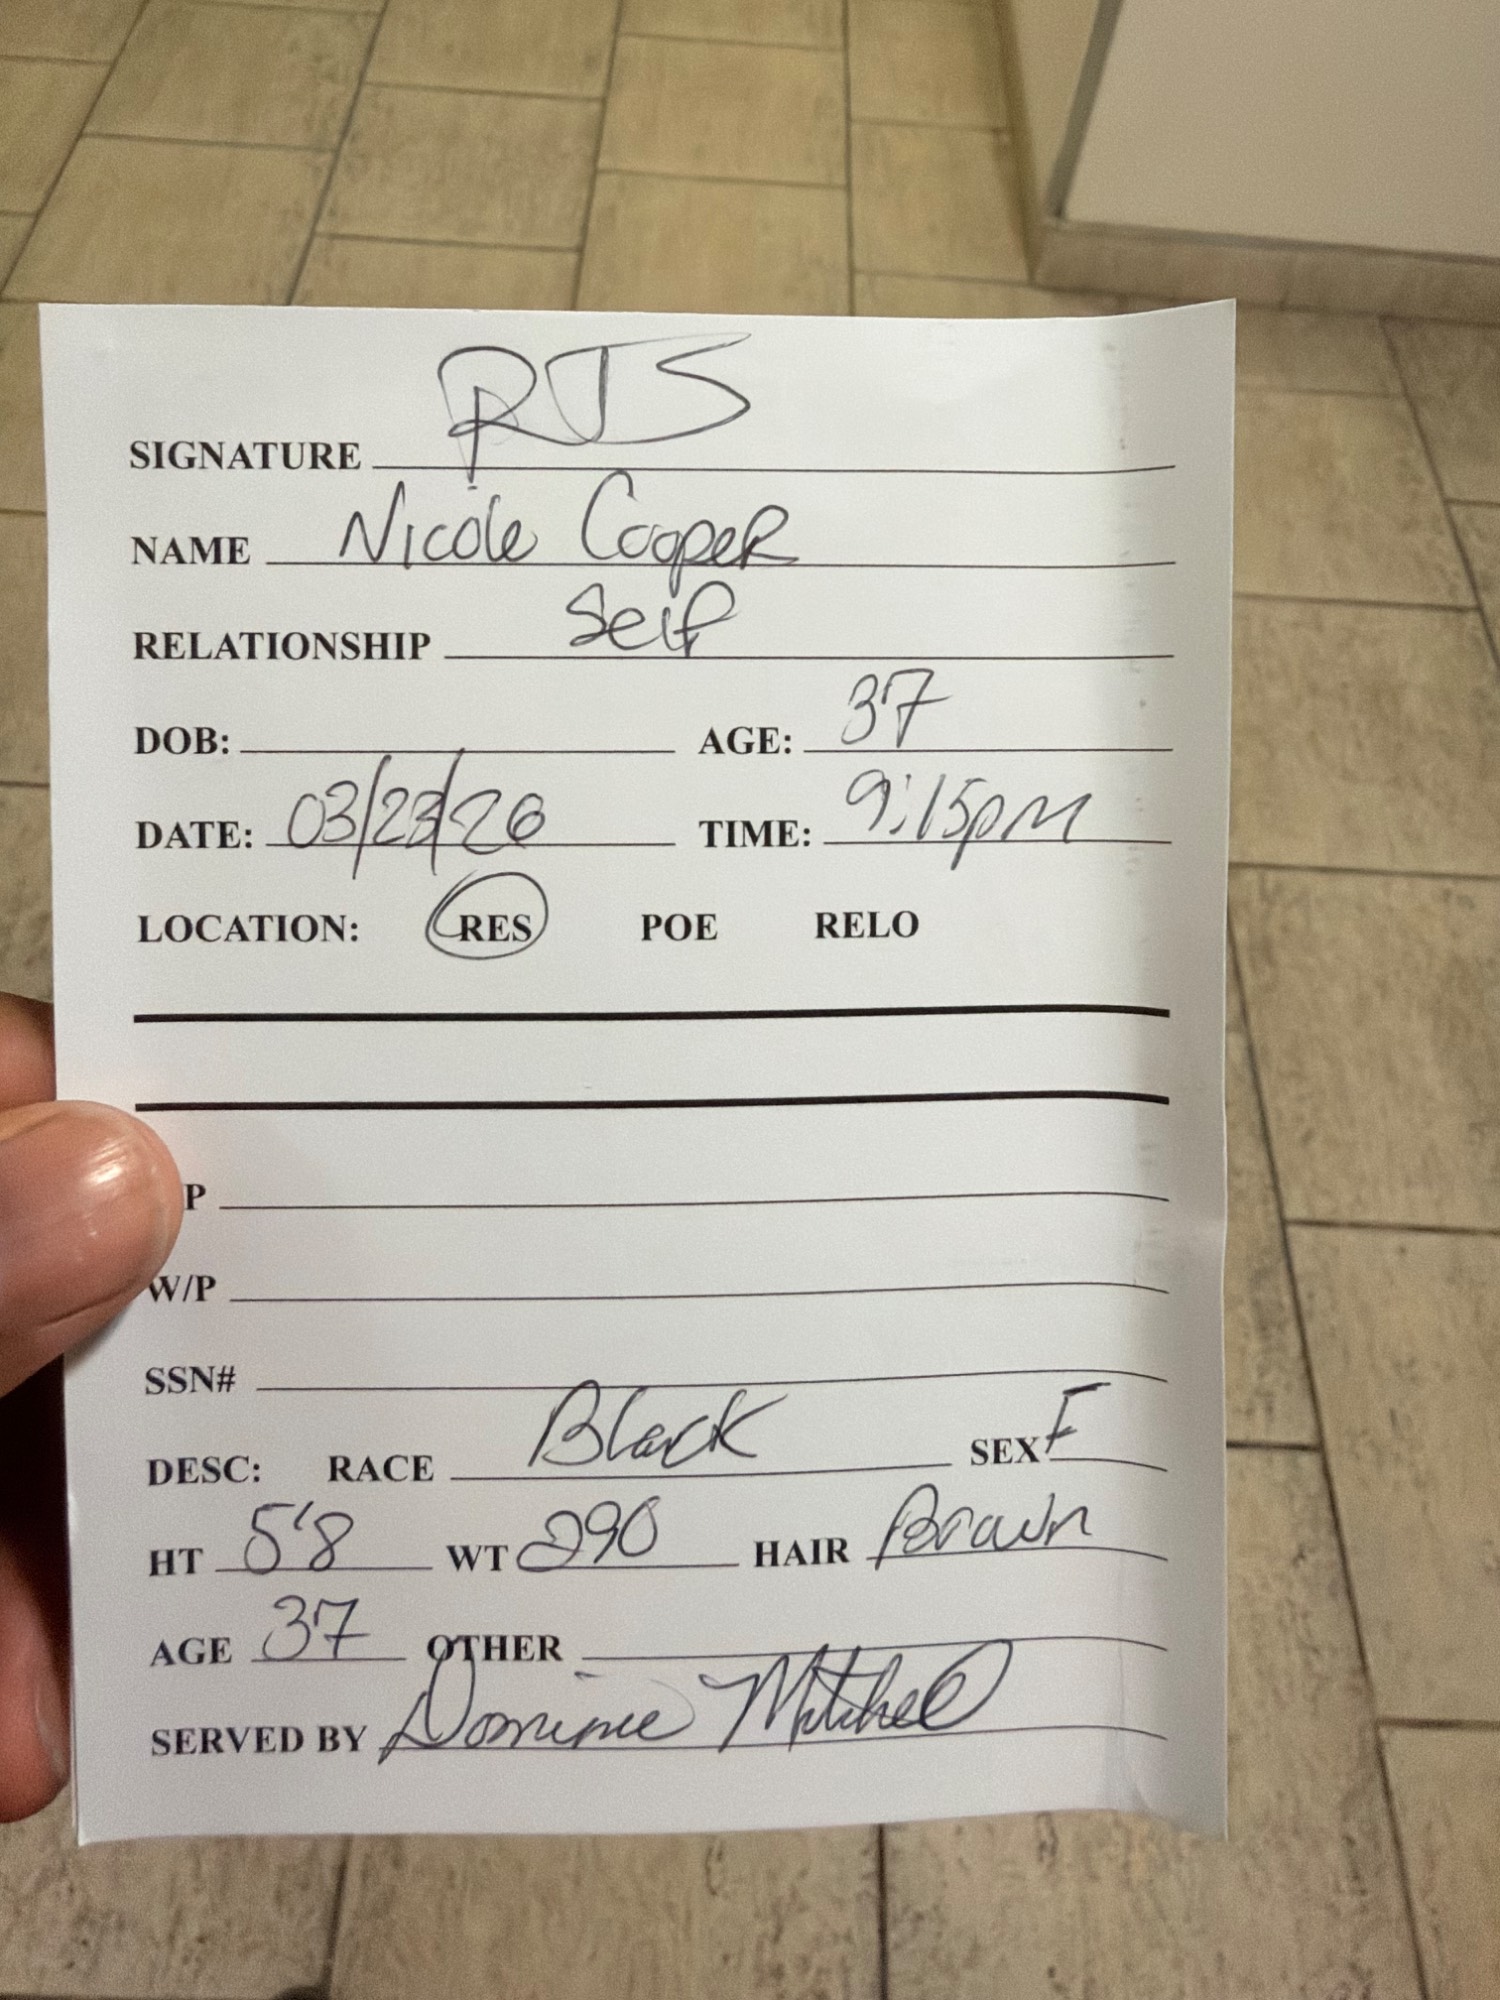 SIGNATURE RTS
NAME Nicole Cooper
RELATIONSHIP Self
DOB: AGE: 37
DATE: 03/23/26 TIME: 9:15pm
LOCATION: RES POE RELO
P
W/P
SSN#
DESC: RACE Black SEX F
HT 5'8 WT 290 HAIR Brown
AGE 37 OTHER
SERVED BY Dominic Mitchell